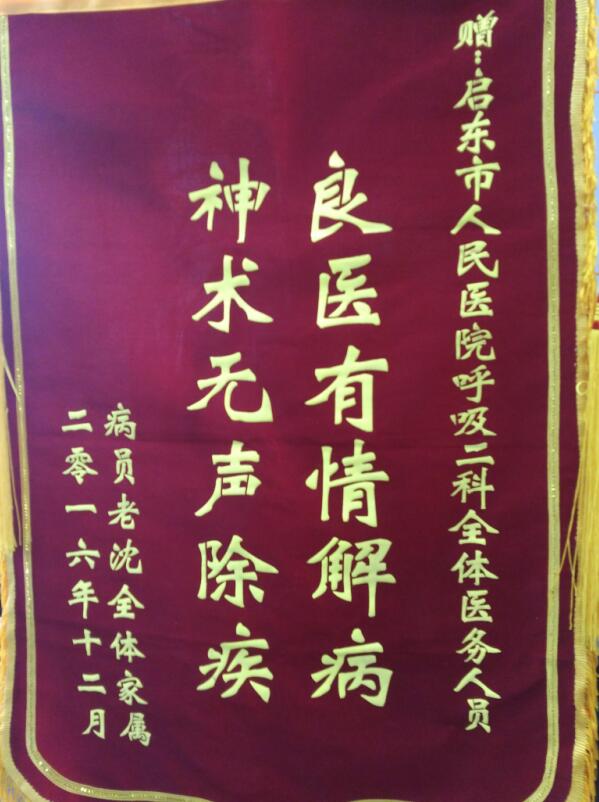 赠:启东市人民医院呼吸二科全体医务人员
良医有情解病
神术无声除疾
病员老沈全体家属
二零一六年十二月